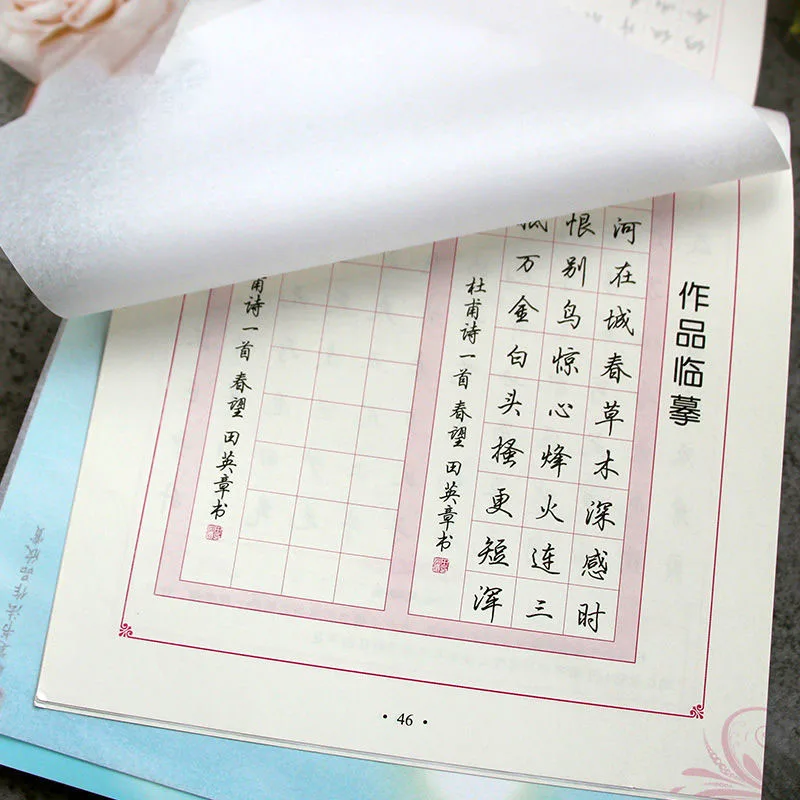 作品临摹
河在城春草木深感时
恨别鸟惊心烽火连三
万金白头搔更短浑
杜甫诗一首 春望 田英章书
甫诗一首 春望 田英章书
• 46 •
书法作品欣赏